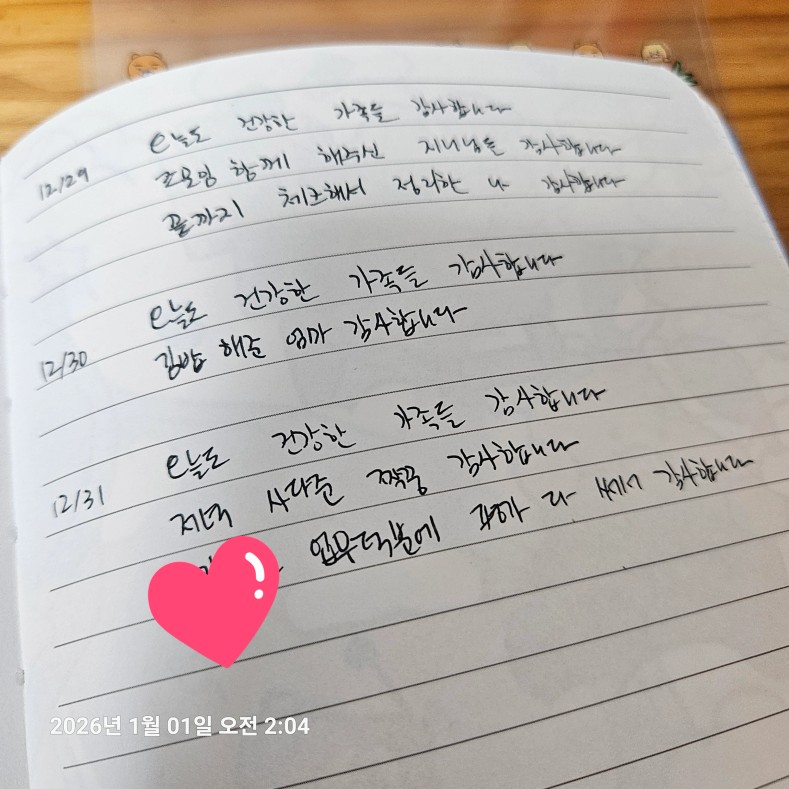 12/29 오늘도 건강한 가족들 감사합니다
줌모임 함께 해주신 지니님들 감사합니다
끝까지 체크해서 정리한 나 감사합니다
12/30 오늘도 건강한 가족들 감사합니다
김밥 해준 엄마 감사합니다
12/31 오늘도 건강한 가족들 감사합니다
저녁 사다준 짝꿍 감사합니다
업무덕분에 다 써서 감사합니다
2026년 1월 01일 오전 2:04